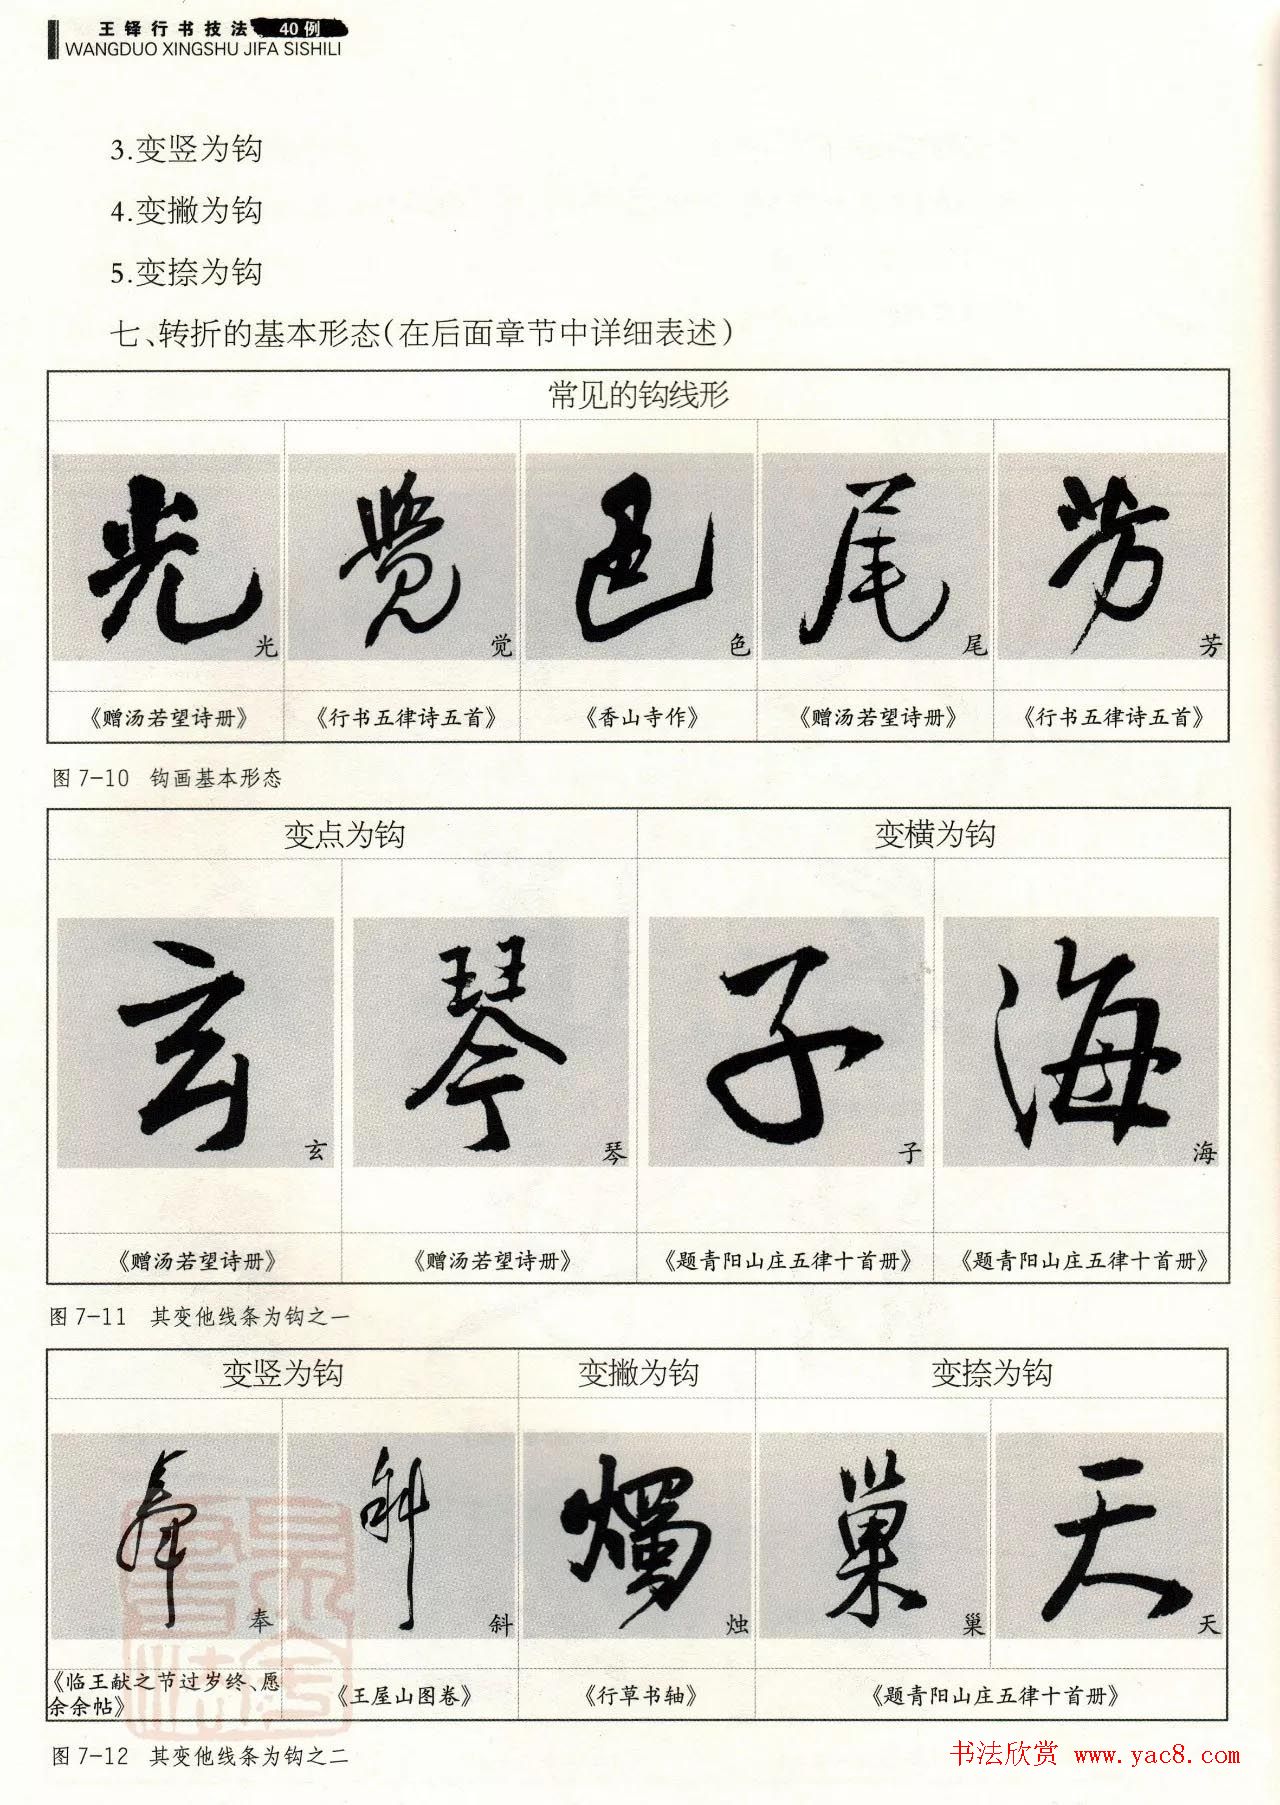 王铎行书技法 40例
WANGDUO XINGSHU JIFA SISHILI
3.变竖为钩
4.变撇为钩
5.变捺为钩
七、转折的基本形态(在后面章节中详细表述)
常见的钩线形
光 觉 色 尾 芳
《赠汤若望诗册》 《行书五律诗五首》 《香山寺作》 《赠汤若望诗册》 《行书五律诗五首》
图 7-10 钩画基本形态
变点为钩 变横为钩
玄 琴 子 海
《赠汤若望诗册》 《赠汤若望诗册》 《题青阳山庄五律十首册》 《题青阳山庄五律十首册》
图 7-11 其变他线条为钩之一
变竖为钩 变撇为钩 变捺为钩
奉 斜 烛 巢 天
《临王献之节过岁终、愿
余余帖》 《王屋山图卷》 《行草书轴》 《题青阳山庄五律十首册》
图 7-12 其变他线条为钩之二
书法欣赏 www.yac8.com